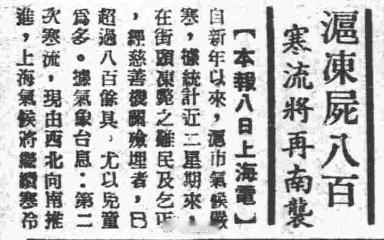 滬凍屍八百
寒流將再南襲
【本報八日上海電】
自新年以來，滬市氣候嚴
寒，據統計近二星期來，
在街頭凍斃之難民及乞丐
，經慈善機關殮埋者，已
超過八百餘具，尤以兒童
爲多。據氣象台息：第二
次寒流，現由西北向南推
進，上海氣候將繼續寒冷